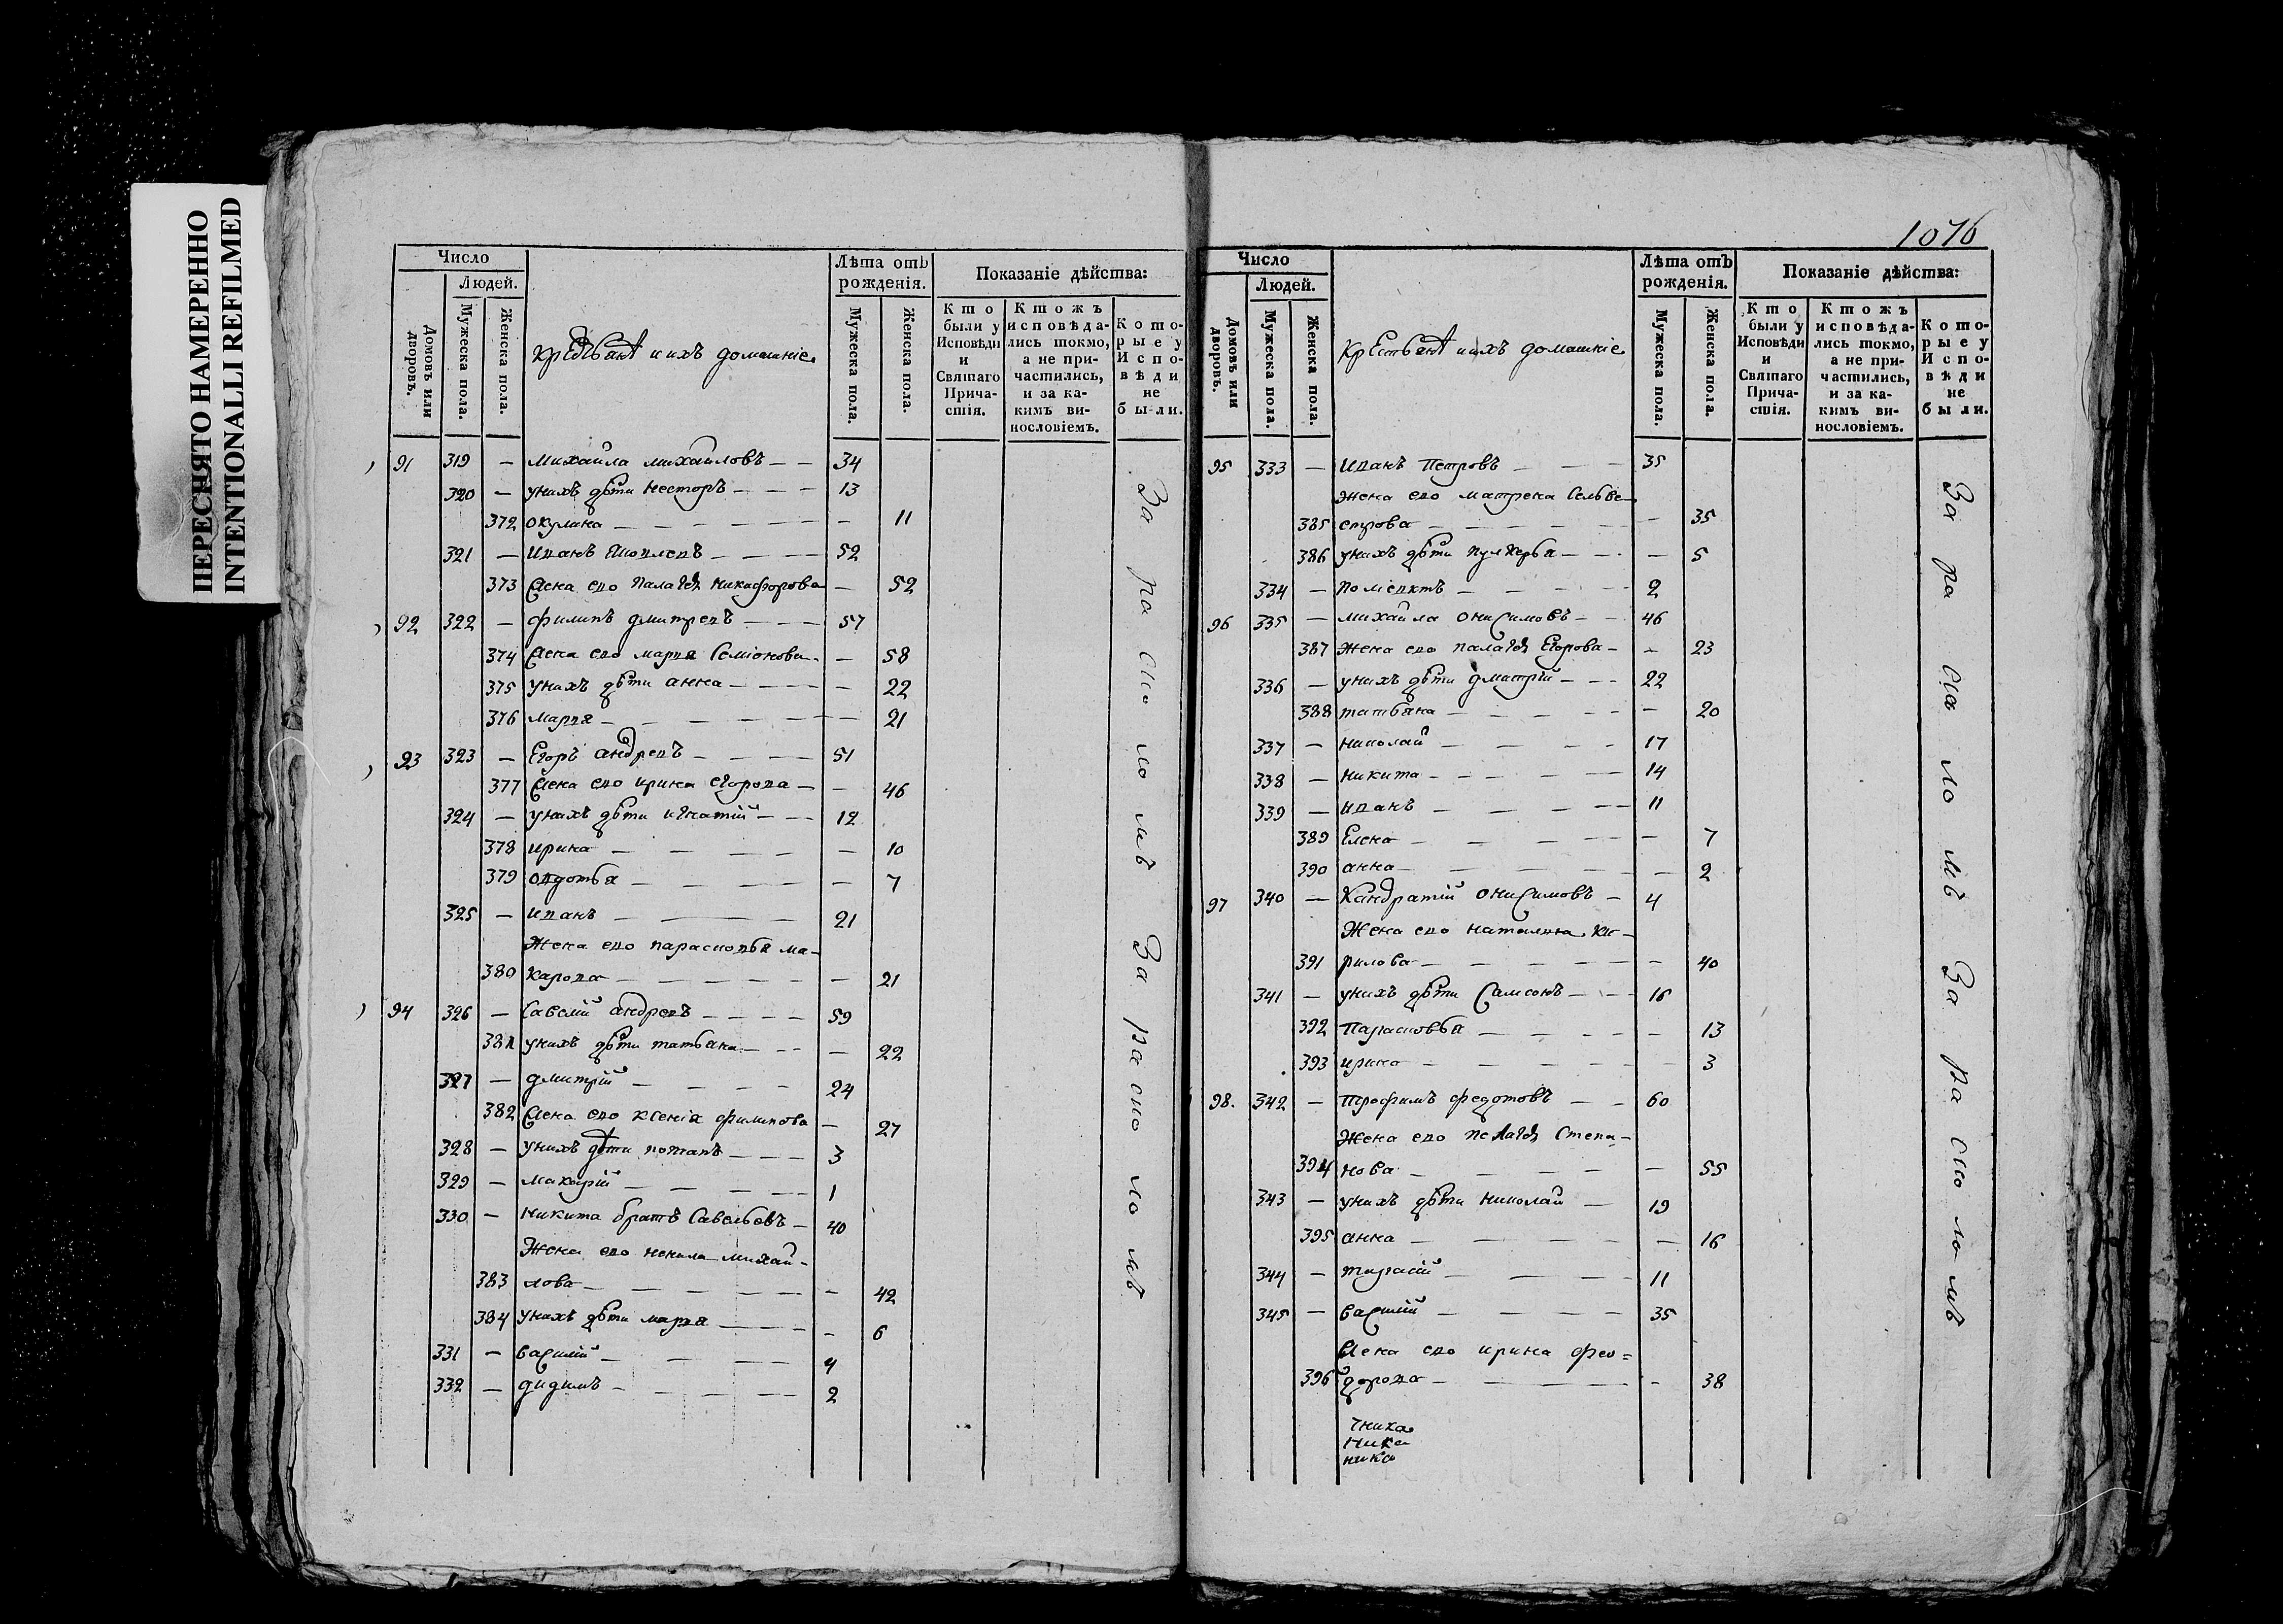 ПЕРЕСНЯТО НАМЕРЕННО
INTENTIONALLI REFILMED
1076
Число
Людей.
Домовъ или дворовъ.
Мужеска пола.
Женска пола.
Лѣта отъ рожденія.
Мужеска пола.
Женска пола.
Показаніе дѣйства:
Кто были у Исповѣди и Святаго Причастія.
Ктожъ исповѣдались токмо, а не причастились, и за какимъ винословіемъ.
Которые у Исповѣди не были.
ихъ домашніе
91 319 — Михайла михайловъ — — 34
320 — унихъ дѣти несторъ — — — 13
372 окулина — — — — — — 11
321 — иванъ — — — 52
373 Жена его палагѣя никифорова — 52
92 322 — филипъ дмитревъ — — — 57
374 Жена его марья Семіонова — 58
375 унихъ дѣти анна — — — — 22
376 марья — — — — — — 21
93 323 — Егоръ андревъ — — — — 51
377 Жена его ирина егорова — — 46
324 — унихъ дѣти игнатій — — — 12
378 ирина — — — — — 10
379 овдотья — — — — — 7
325 — иванъ — — — 21
Жена его парасковья ма-
380 карова — — — — — 21
94 326 — Савелій андревъ — — — — 59
381 унихъ дѣти татьяна — — — — 22
327 — дмитрій — — — — 24
382 Жена его ксенія филипова — 27
328 — унихъ дѣти потапъ — — — 3
329 — макарій — — — — 1
330 — Никита братъ Савельевъ — 40
Жена его ненила михай-
383 лова — — — — — — 42
384 унихъ дѣти марья — — — — 6
331 — василій — — — — 4
332 — дидимъ — — — — 2
За ра ско ло мъ За ра ско ло мъ
Число
Людей.
Домовъ или дворовъ.
Мужеска пола.
Женска пола.
ихъ домашніе
Лѣта отъ рожденія.
Мужеска пола.
Женска пола.
Показаніе дѣйства:
Кто были у Исповѣди и Святаго Причастія.
Ктожъ исповѣдались токмо, а не причастились, и за какимъ винословіемъ.
Которые у Исповѣди не были.
95 333 — иванъ Петровъ — — — 35
Жена его матрена Сельве-
385 строва — — — — — 35
386 унихъ дѣти пулхерья — — — 5
334 — — — — — 2
96 335 — михайла онисимовъ — — 46
387 Жена его палагѣя Егорова — — 23
336 — унихъ дѣти дмитрій — — — 22
388 татьяна — — — — — — 20
337 — николай — — — — 17
338 — никита — — — — — 14
339 — иванъ — — — — 11
389 Елена — — — — — — 7
390 анна — — — — — 2
97 340 — Кандратій онисимовъ — 4
Жена его наталья ки-
391 рилова — — — — — — 40
341 — унихъ дѣти Самсонъ — — — 16
392 Парасковья — — — — — 13
393 ирина — — — — — — 3
98. 342 — трофимъ федотовъ — — 60
Жена его пелагѣя Степа-
394 нова — — — — — — 55
343 — унихъ дѣти николай — 19
395 анна — — — — — — 16
344 — тарасій — — — — 11
345 — василій — — — — 35
Жена его ирина фео=
396 дорова — — — — 38
ника
ника
За ра ско ло мъ За ра ско ло мъ